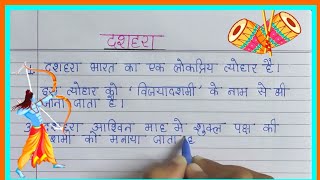 दशहरा
दशहरा भारत का एक लोकप्रिय त्योहार है।
त्योहार को 'विजयादशमी' के नाम से भी
जाना जाता है।
आश्विन माह मे शुक्ल पक्ष की
को मनाया जाता है